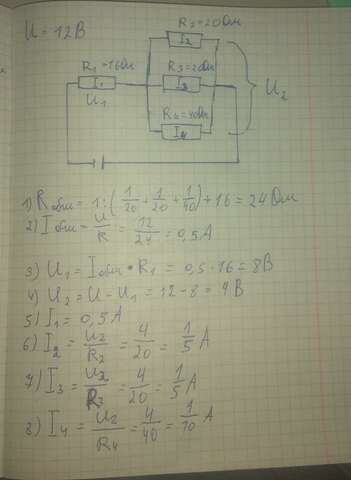 U=12В
R2=20Ом
I2
R1=16Ом
I1
U1
R3=20Ом
I3
U2
R4=40Ом
I4
1) Rобщ = 1:(1/20 + 1/20 + 1/40) + 16 = 24 Ом
2) Iобщ = U/R = 12/24 = 0,5 А
3) U1 = Iобщ • R1 = 0,5 · 16 = 8В
4) U2 = U - U1 = 12 - 8 = 4 В
5) I1 = 0,5 А
6) I2 = U2/R2 = 4/20 = 1/5 А
7) I3 = U2/R3 = 4/20 = 1/5 А
8) I4 = U2/R4 = 4/40 = 1/10 А